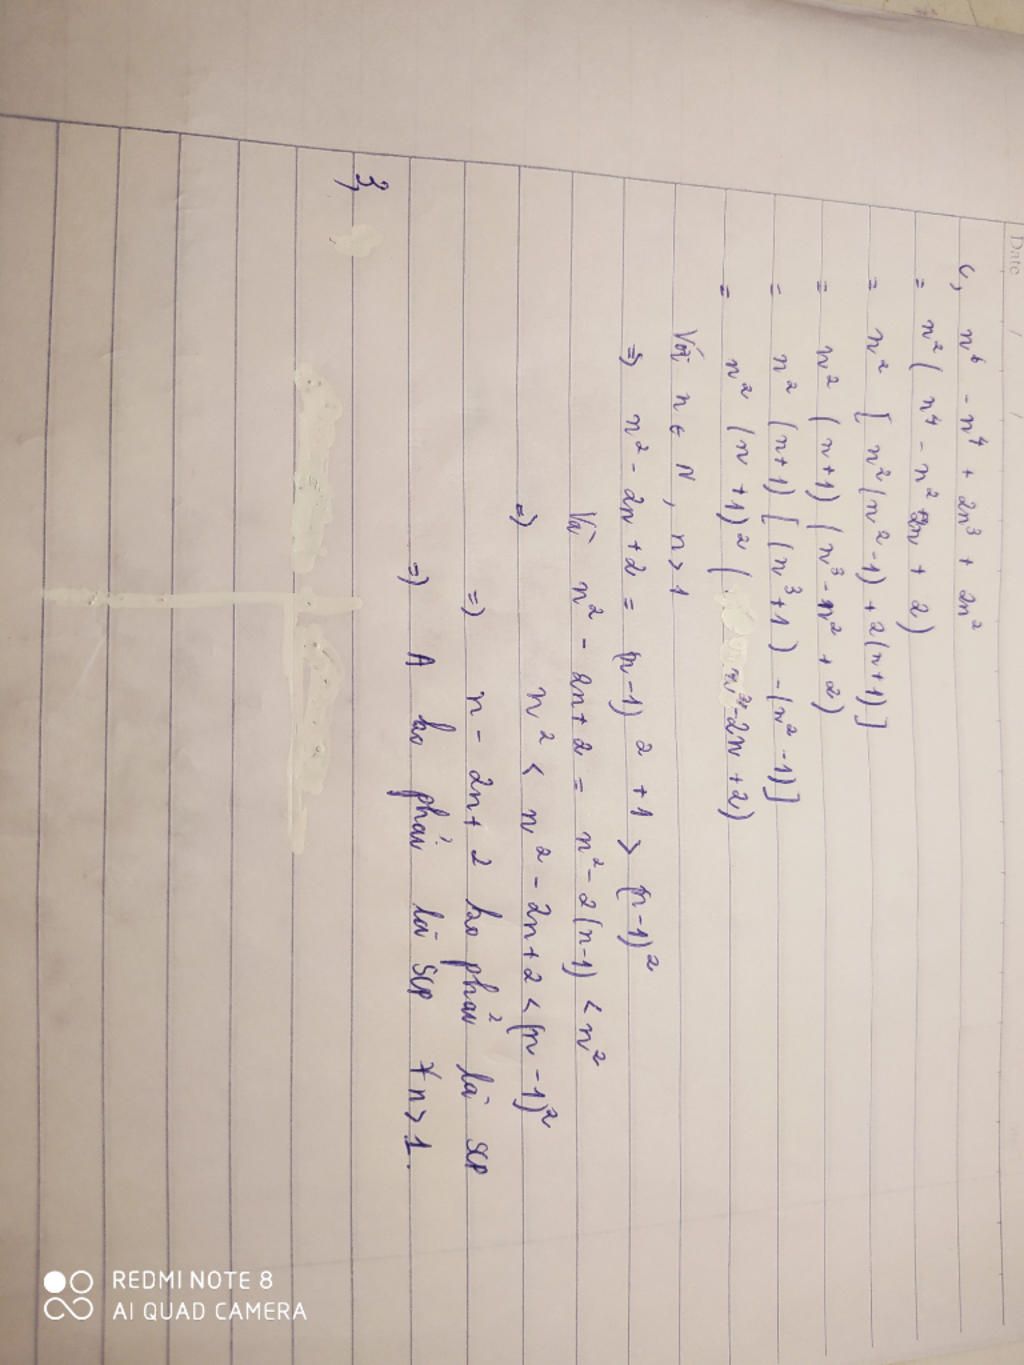 Date
c, n⁶ - n⁴ + 2n³ + 2n²
= n² ( n⁴ - n² + 2n + 2)
= n² [ n² (n² -1) + 2(n+1) ]
= n² (n+1) ( n³ - n² + 2)
= n² (n+1) [ (n³ +1 ) - (n² -1) ]
= n² (n +1)² ( n² - 2n +2)
Với n ∈ N , n > 1
=> n² - 2n +2 = (n-1)² +1 > (n-1)²
Và n² - 2n + 2 = n² - 2(n-1) < n²
=> n² < n² - 2n +2 < (n -1)²
=> n - 2n + 2 ko phải là SCP
=> A ko phải là SCP ∀ n > 1.
3,
REDMI NOTE 8
AI QUAD CAMERA